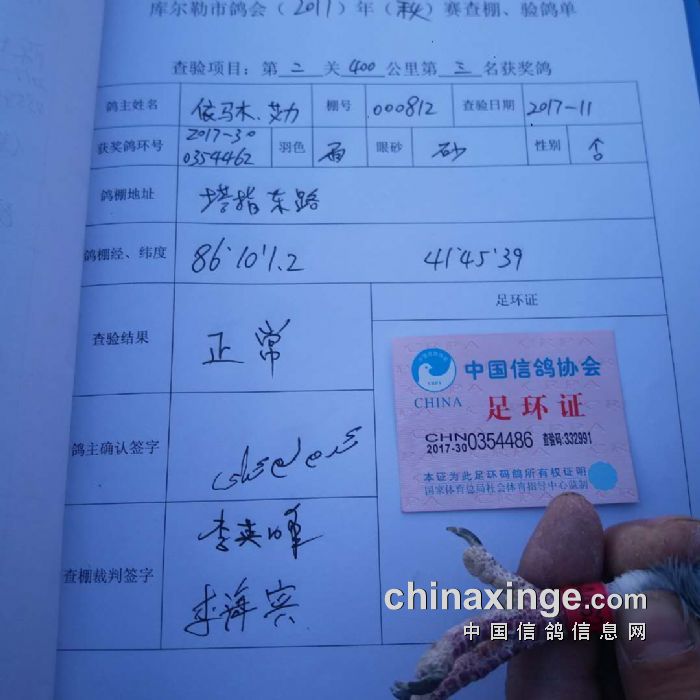 库尔勒市鸽会（2017）年（秋）赛查棚、验鸽单
查验项目：第 二 关 400 公里第 三 名获奖鸽
鸽主姓名 依马木.艾力 棚号 000812 查验日期 2017-11
获奖鸽环号 2017-30 0354462 羽色 雨 眼砂 砂 性别
鸽棚地址 塔指东路
鸽棚经、纬度 86°10'1.2 41°45'39
足环证
查验结果 正常
中国信鸽协会
CHINA 足环证
CHN 0354486 查验码:332991
2017-30
本证为此足环码鸽所有权证明
国家体育总局社会体育指导中心监制
鸽主确认签字
查棚裁判签字 李英晖
李海宾
chinaxinge.com
中国信鸽信息网